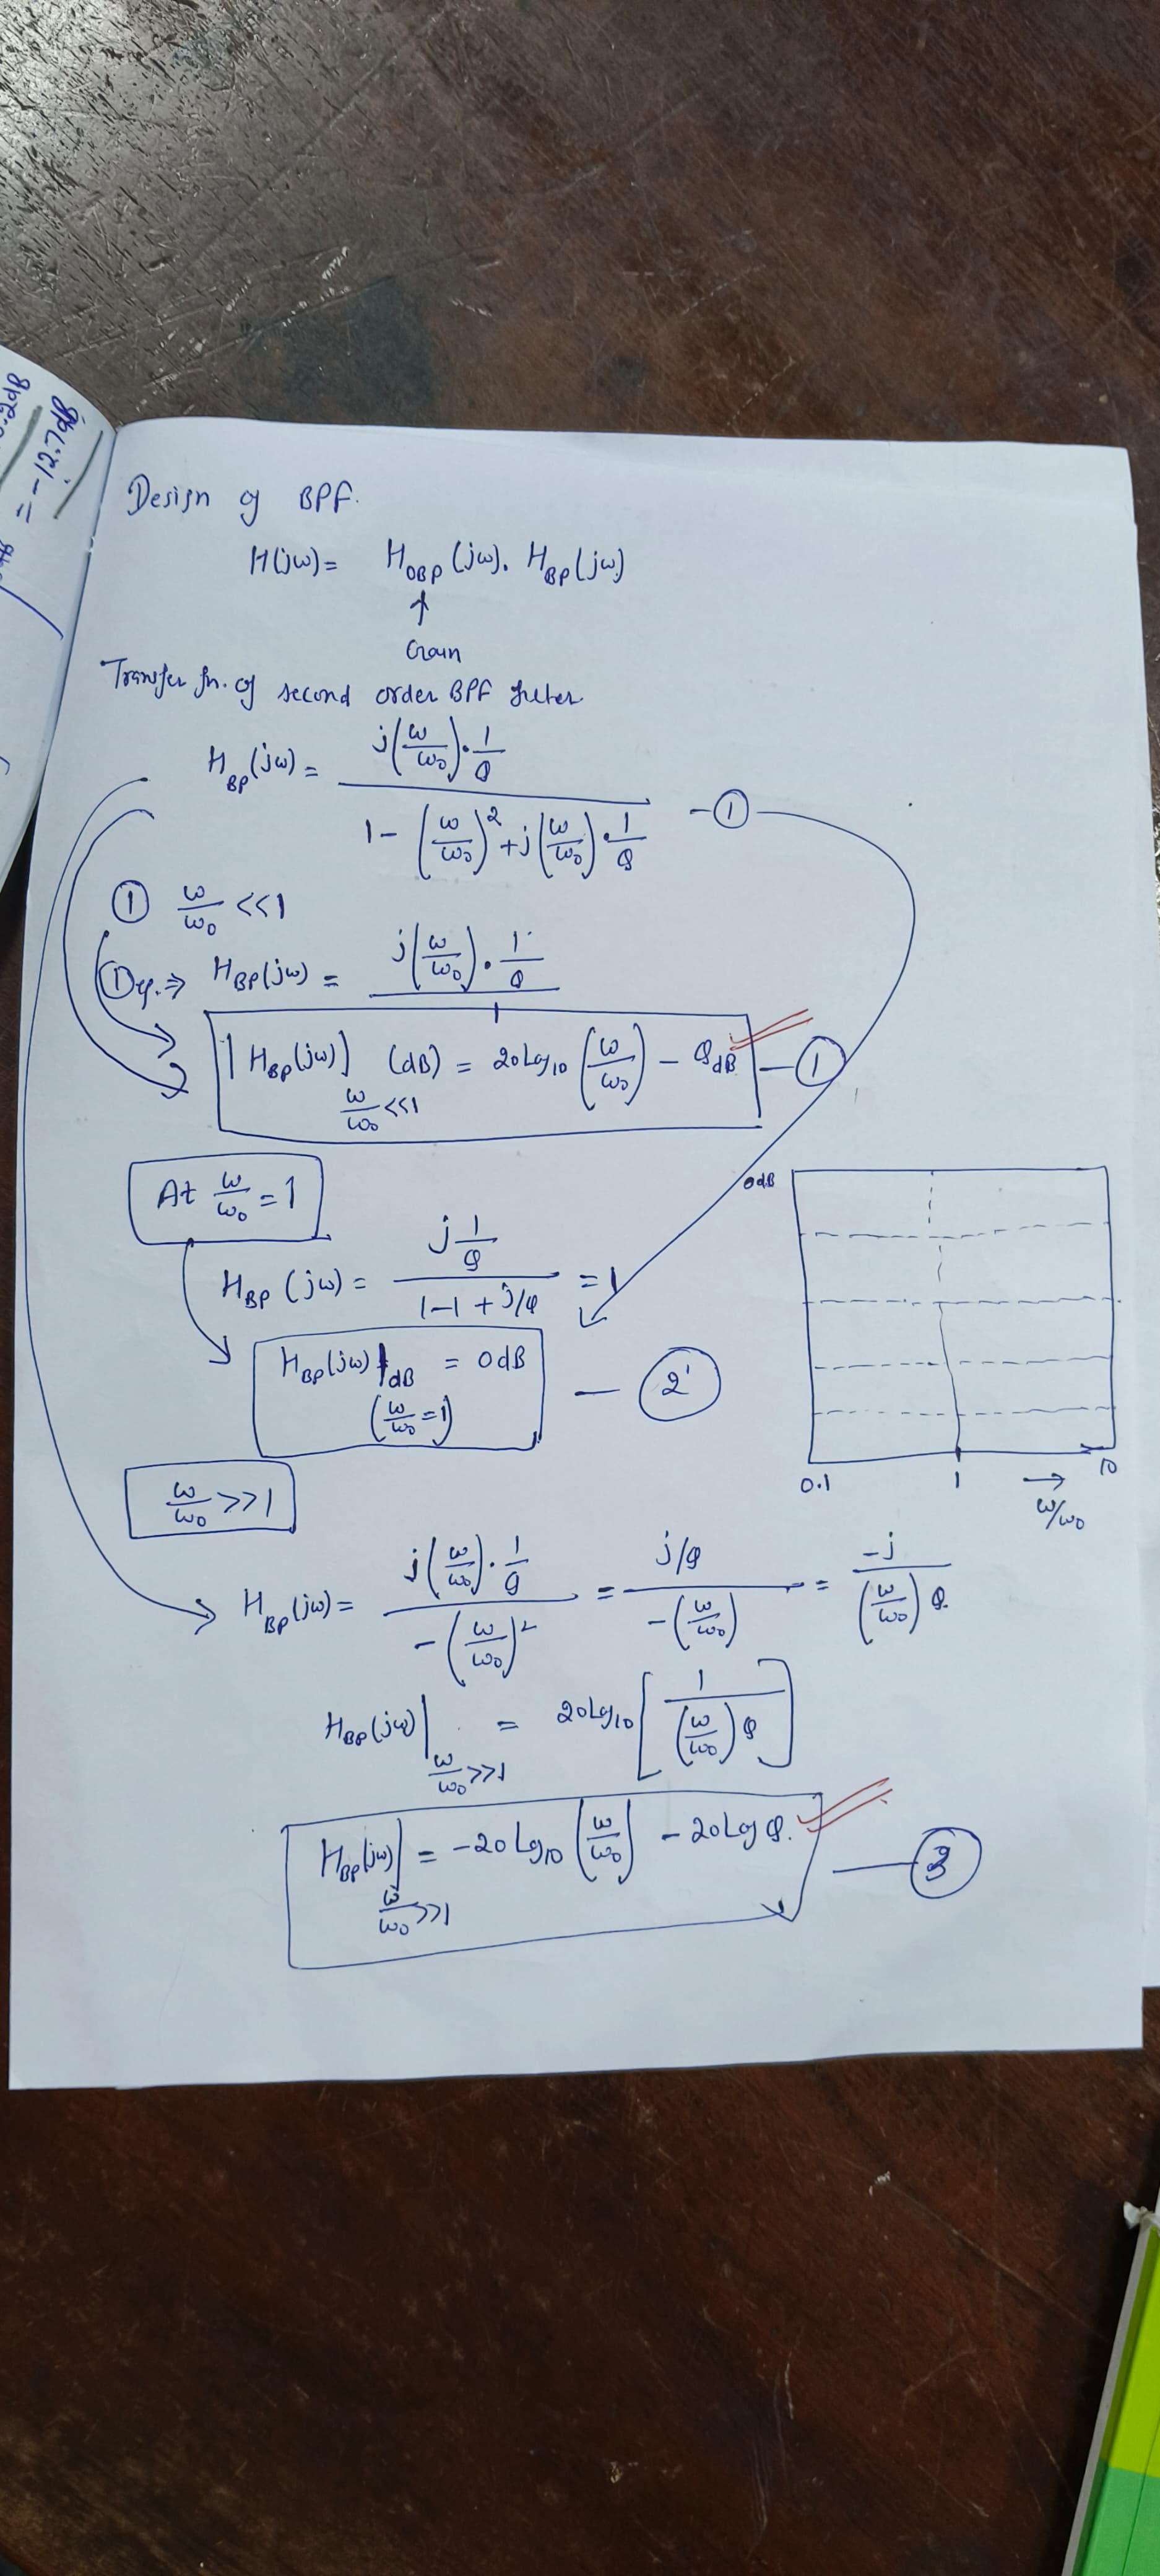 0.2dB
= -12.7dB
Design of BPF.
H(jω) = H_OBP(jω). H_BP(jω)
↑
Gain
Transfer fn. of second order BPF filter.
H_BP(jω) = j(ω/ω₀)·1/Q / 1-(ω/ω₀)²+j(ω/ω₀)·1/Q —①
① ω/ω₀ <<1
① eq. ⇒ H_BP(jω) = j(ω/ω₀)·1/Q / 1
|H_BP(jω)| (dB) = 20Log₁₀(ω/ω₀) - Q_dB —①
ω/ω₀ <<1
At ω/ω₀ = 1
H_BP(jω) = j 1/Q / 1-1+j/Q = 1
H_BP(jω)|dB = 0dB —②'
(ω/ω₀ = 1)
0dB
0.1 1 → 10
ω/ω₀
ω/ω₀ >>1
H_BP(jω) = j(ω/ω₀)·1/Q / -(ω/ω₀)² = j/Q / -(ω/ω₀) = -j / (ω/ω₀)Q.
H_BP(jω)| = 20Log₁₀[1 / (ω/ω₀)Q]
ω/ω₀ >>1
H_BP(jω)| = -20Log₁₀(ω/ω₀) - 20Log Q. —③
ω/ω₀ >>1